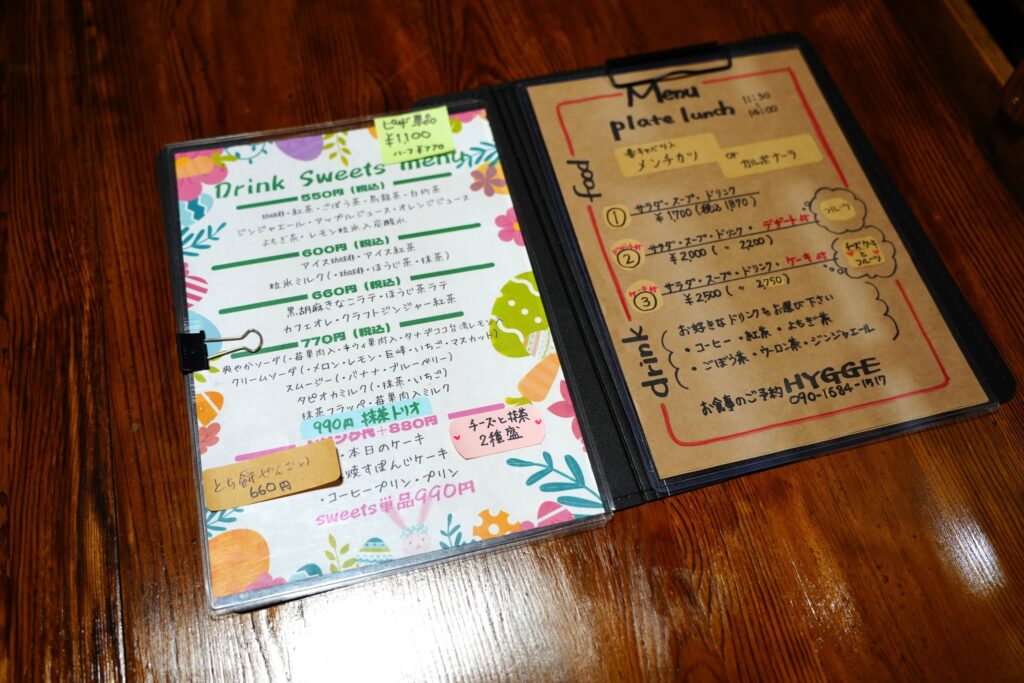 ピザ単品
¥1,100
ハーフ ¥770
Drink Sweets menu
550円(税込)
珈琲・紅茶・ごぼう茶・烏龍茶・白桃茶
ジンジャエール・アップルジュース・オレンジジュース
よもぎ茶・レモン粒氷入炭酸水
600円(税込)
アイス珈琲・アイス紅茶
粒氷ミルク(・珈琲・ほうじ茶・抹茶)
660円(税込)
黒胡麻きなこラテ・ほうじ茶ラテ
カフェオレ・クラフトジンジャー紅茶
770円(税込)
爽やかソーダ(・苺果肉入・キウィ果肉入・タナデココ台湾レモン入
クリームソーダ(・メロン・レモン・巨峰・いちご・マスカット)
スムージー(・バナナ・ブルーベリー)
タピオカミルク(・抹茶・いちご)
抹茶フラッペ・苺果肉入ミルク
990円 抹茶トリオ
ドリンク代+880円
・本日のケーキ
焼すぽんじケーキ
・コーヒープリン・プリン
sweets単品990円
チーズと抹茶
2種盛
とち餅ぜんざい
660円
Menu
plate lunch
11:30
14:00
food
春キャベツ入
メンチカツ
or カルボナーラ
① サラダ・スープ・ドリンク
¥1700(税込1870)
デザート付
② サラダ・スープ・ドリンク・デザート付
¥2000(〃 2200)
フルーツ
ケーキ付
③ サラダ・スープ・ドリンク・ケーキ付
¥2500(〃 2,750)
チーズケーキ
と
フルーツ
drink
お好きなドリンクをお選び下さい
・コーヒー・紅茶・よもぎ茶
・ごぼう茶・ウーロン茶・ジンジャエール
HYGGE
お食事のご予約 090-1684-1517